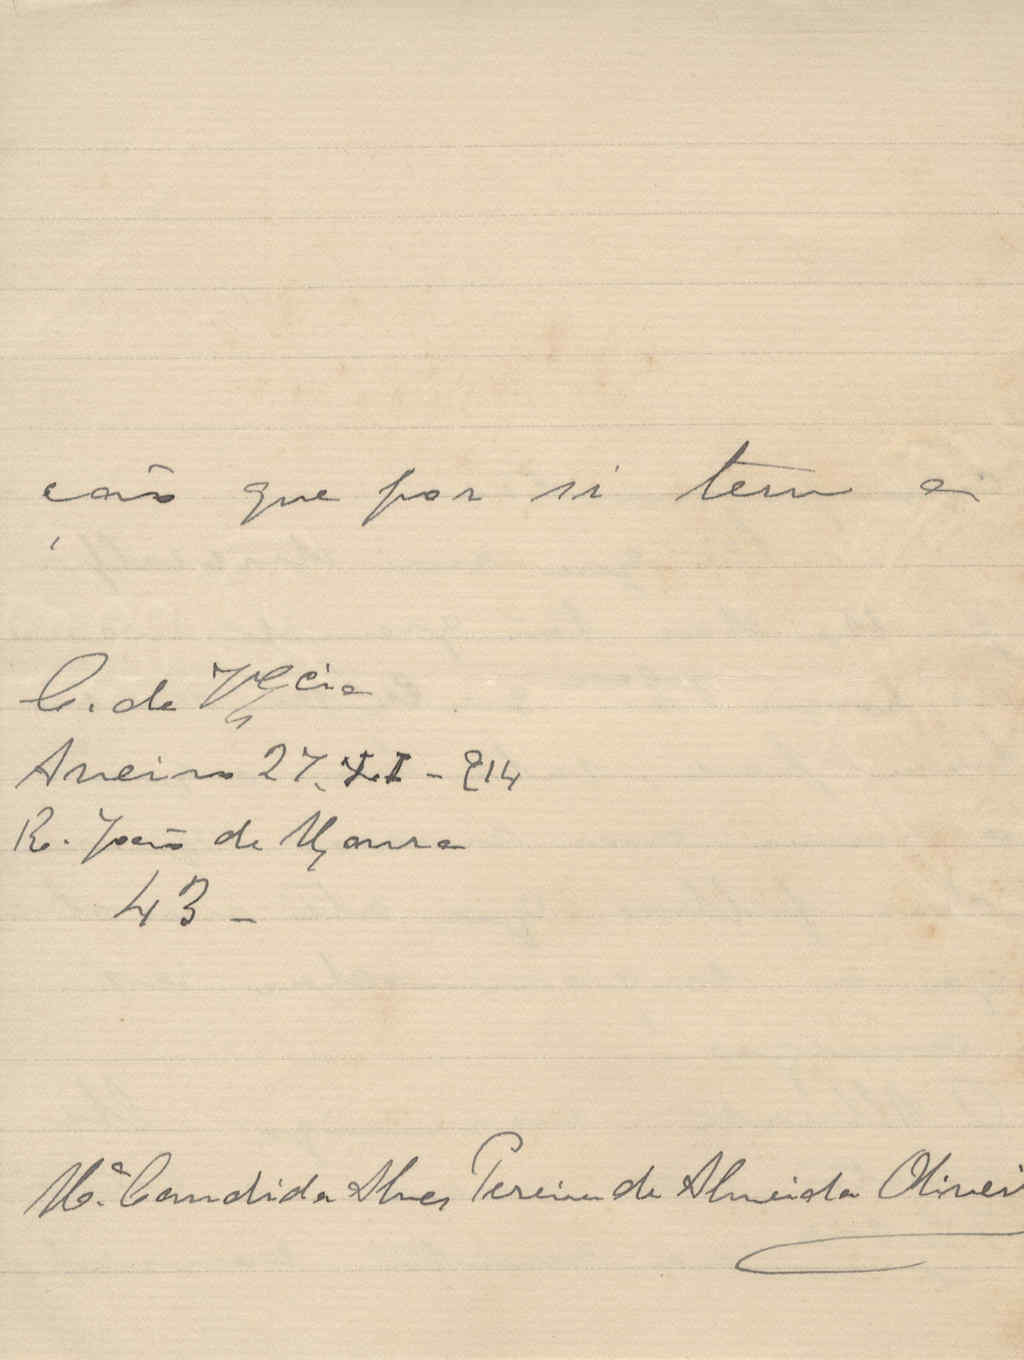 ção que por si tem a
C. de V. Excia
Aveiro 27.XI-914
R. João de Moura
43 -
Mª. Candida Alves Pereira de Almeida Olivei